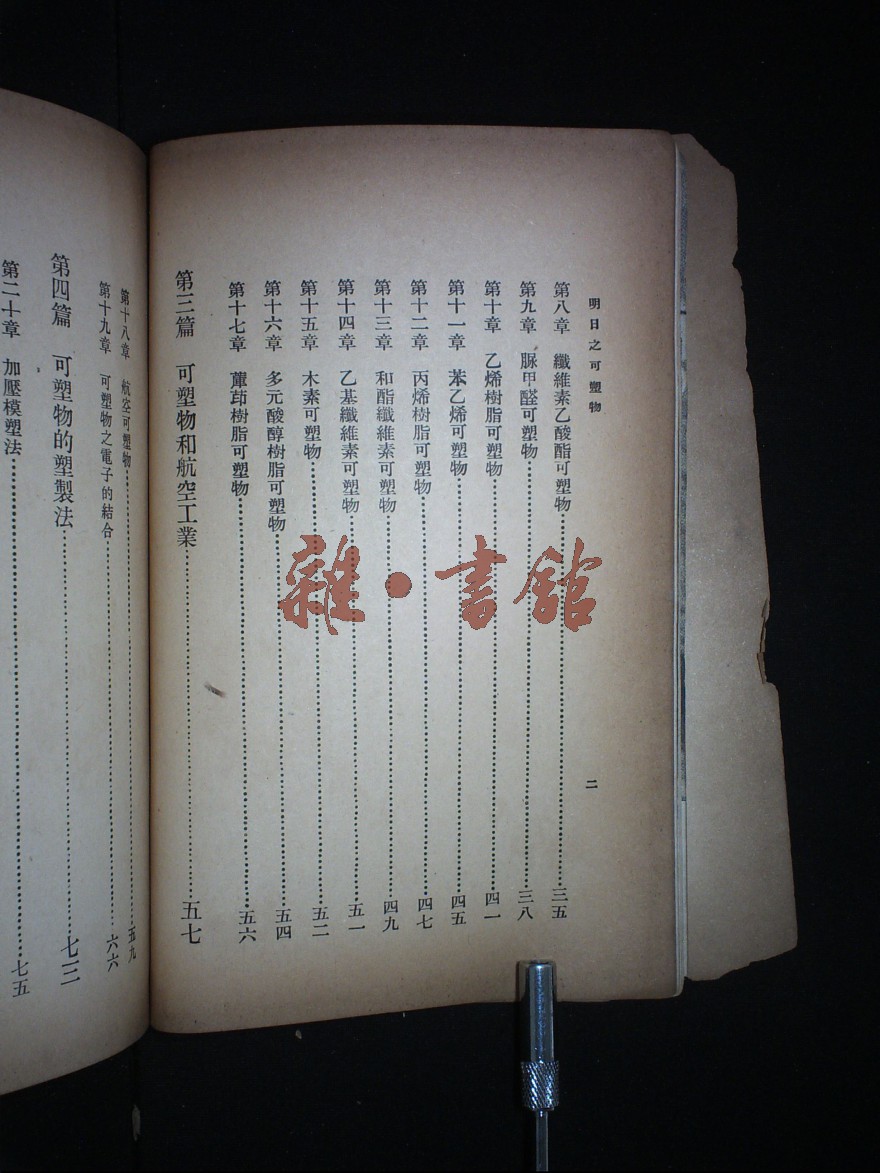 明日之可塑物
二
第八章 纖維素乙酸酯可塑物 三五
第九章 脲甲醛可塑物 三八
第十章 乙烯樹脂可塑物 四一
第十一章 苯乙烯可塑物 四五
第十二章 丙烯樹脂可塑物 四七
第十三章 和酯纖維素可塑物 四九
第十四章 乙基纖維素可塑物 五一
第十五章 木素可塑物 五二
第十六章 多元酸醇樹脂可塑物 五四
第十七章 薕茚樹脂可塑物 五六
第三篇 可塑物和航空工業 五七
第十八章 航空可塑物 五九
第十九章 可塑物之電子的結合 六六
第四篇 可塑物的塑製法 七三
第二十章 加壓模塑法 七五
雜·書館